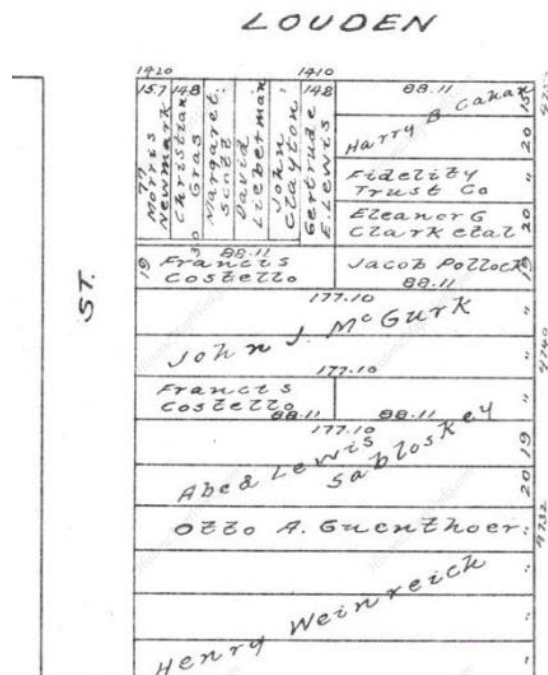 LOUDEN
1420
1410
15.7
77
Morris
Newmark
14.8
Christian
Gras
Margaret
Scott
David
Lieberman
John
Clayton
14.8
Gertrude
E. Lewis
88.11
Harry B Cahan
15
20
"
Fidelity
Trust Co
Eleanor G
Clark etal
20
19
88.11
Francis
Costello
Jacob Pollock
88.11
19
ST.
177.10
John J. McGurk
"
"
4740
177.10
Francis
Costello
88.11
88.11
"
177.10
Abe & Lewis
Sabloskey
19
20
Otto A. Guenthoer
"
4732
Henry Weinreich
"
"
"